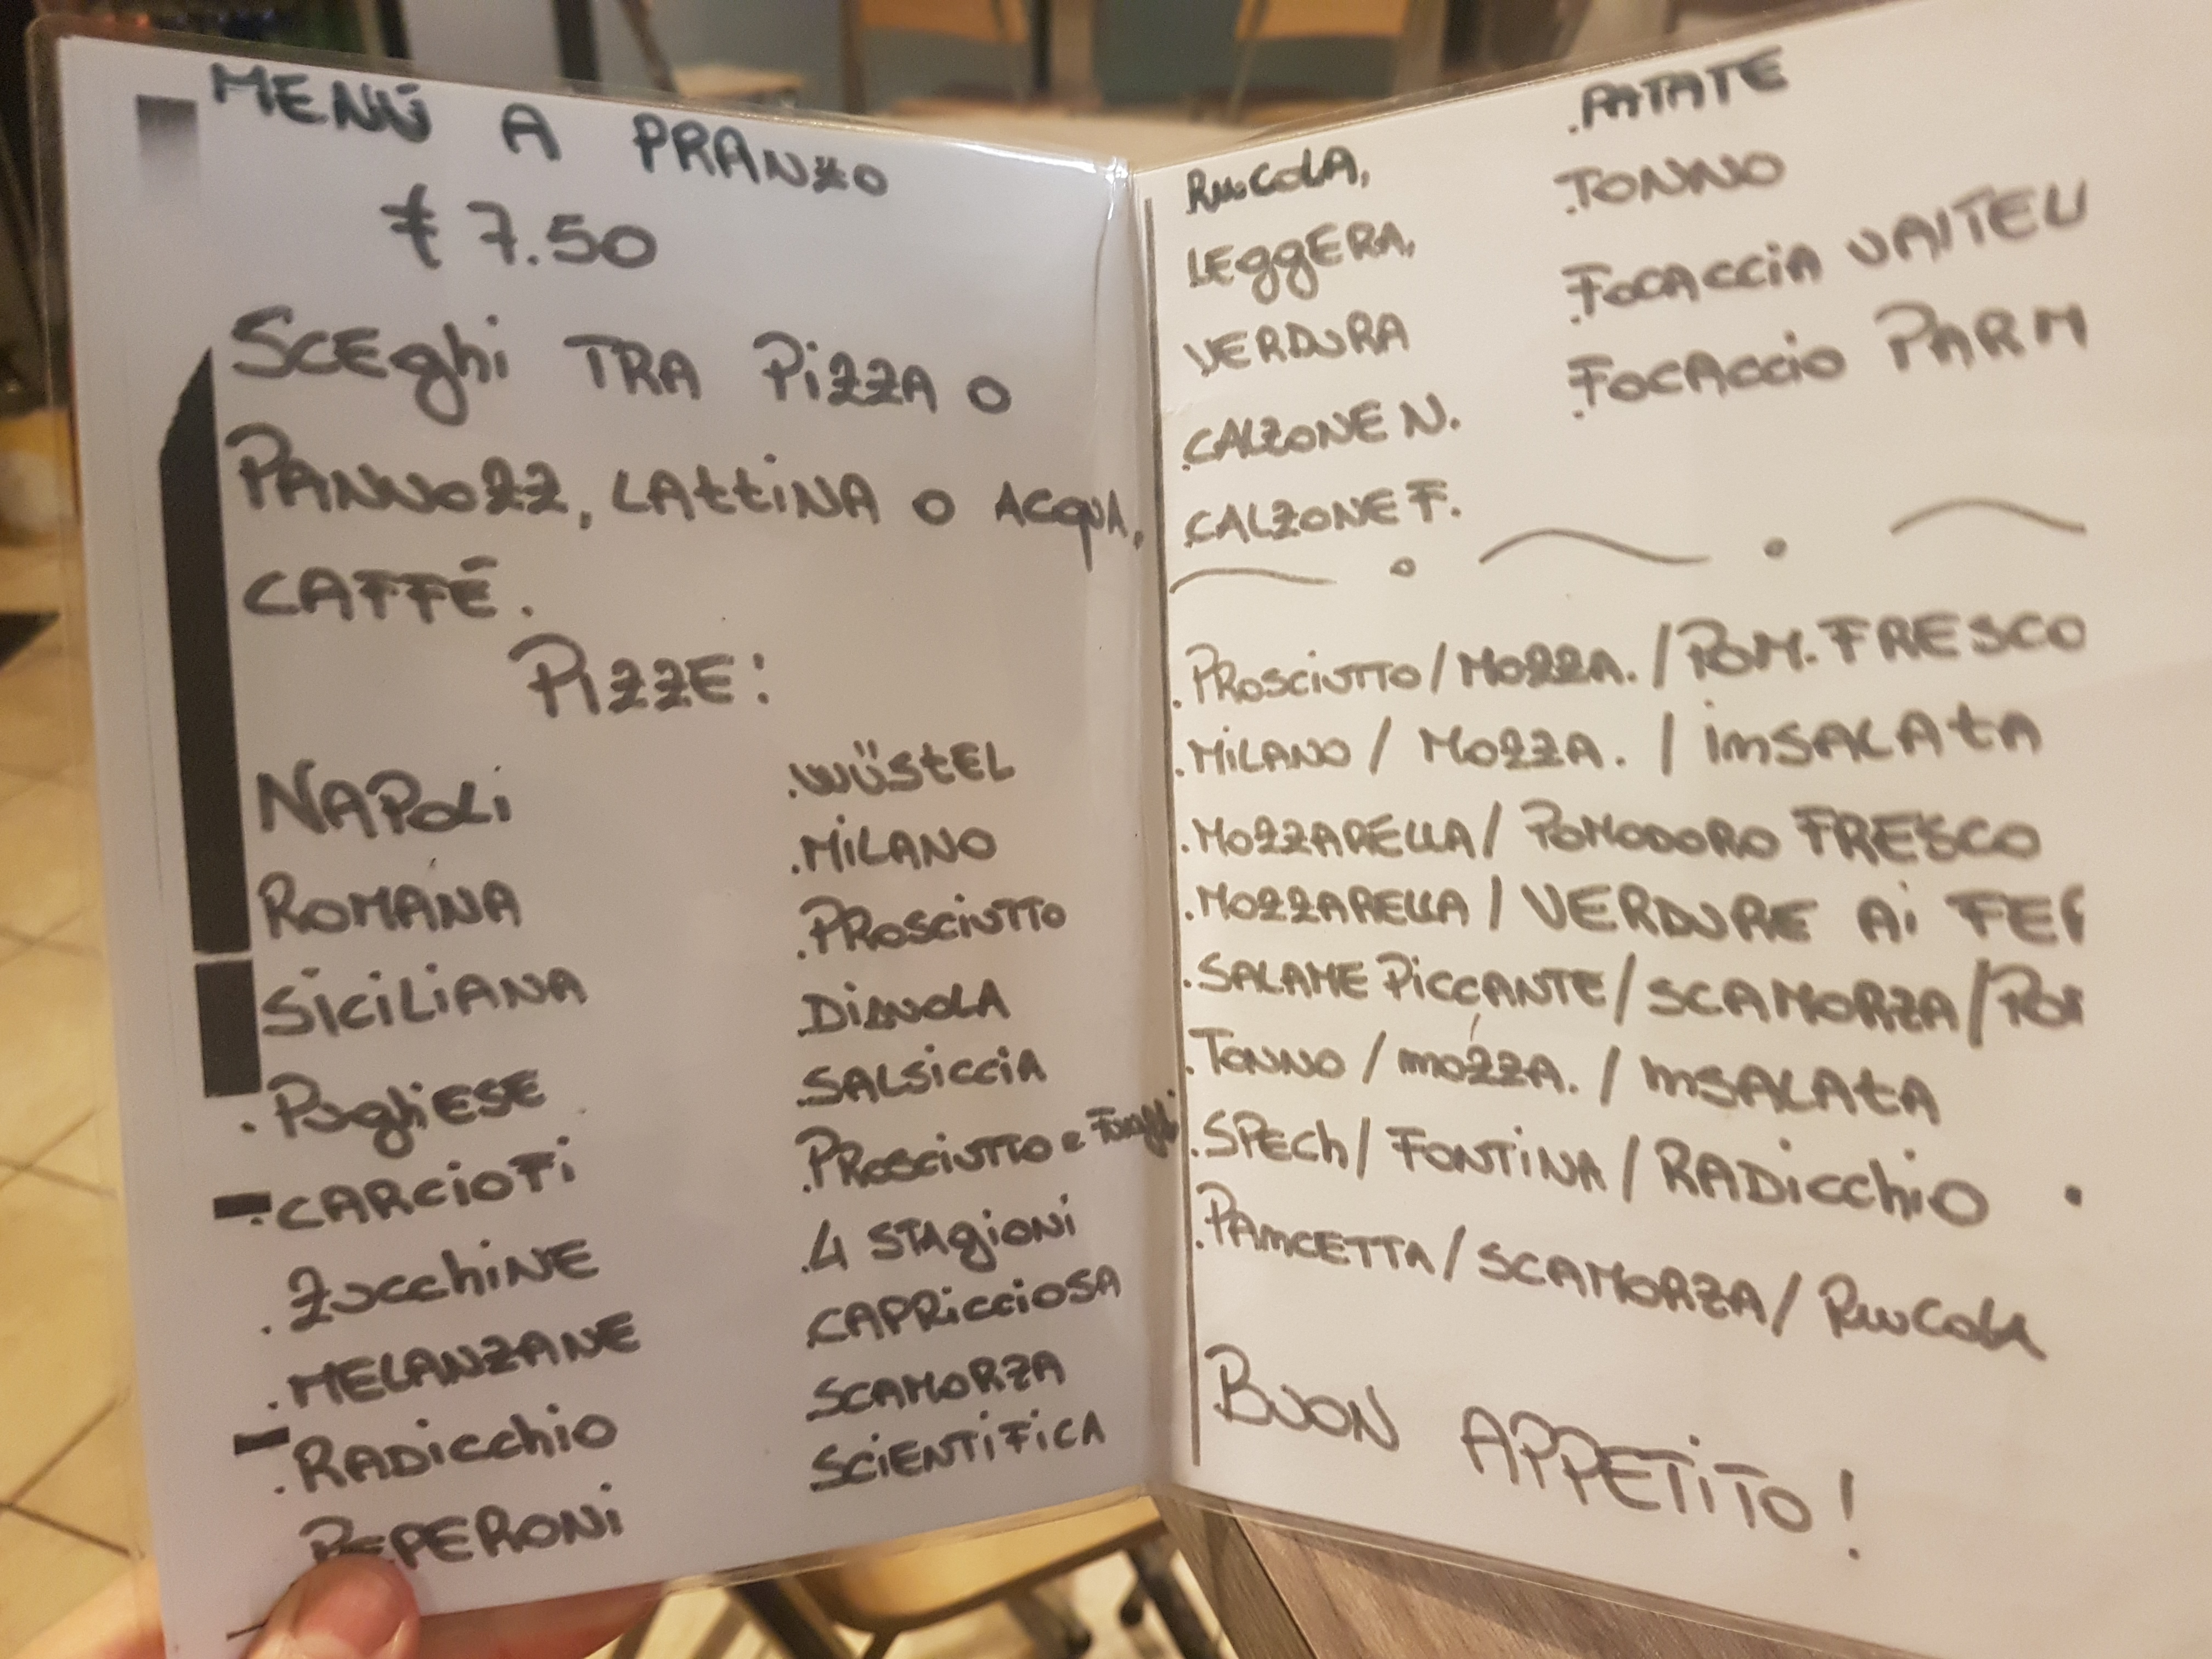 MENÚ A PRANZO
€ 7.50
SCEghi TRA PiZZA O
PANNOZZ, LAttiNA O ACQUA,
CAFFÉ.
PIZZE:
NAPOLi
ROMANA
SiCiLiANA
.PugliESE
.CARCIOFi
.ZucchiNE
.MELANZANE
.RADicchio
PEPERONi
.WÜStEL
.MiLANO
.PROSCIUTTO
.DiAVOLA
.SALSiCCiA
.PROSCIUTTO e FUNghi
.4 STAgiONi
.CAPRiCCiOSA
.SCAMORZA
.SCiENTiFiCA
RUCOLA,
.LEggERA,
.VERDURA
.CALZONE N.
.CALZONE F.
.PATATE
.TONNO
.FOCACCiA VAITELL
.FOCACCIO PARM
.PROSCIUTTO/MOZZA./POM. FRESCO
.MiLANO / MOZZA. / iNSALAtA
.MOZZARELLA/ POMODORO FRESCO
.MOZZARELLA / VERDURE Ai FER
.SALAME PiCCANTE/SCAMORZA/POM
.TONNO / MOZZA. / INSALAtA
.SPECh/ FONTiNA/RADicchio
.PANCETTA/SCAMORZA/ RUCOLA
BUON APPETiTO!